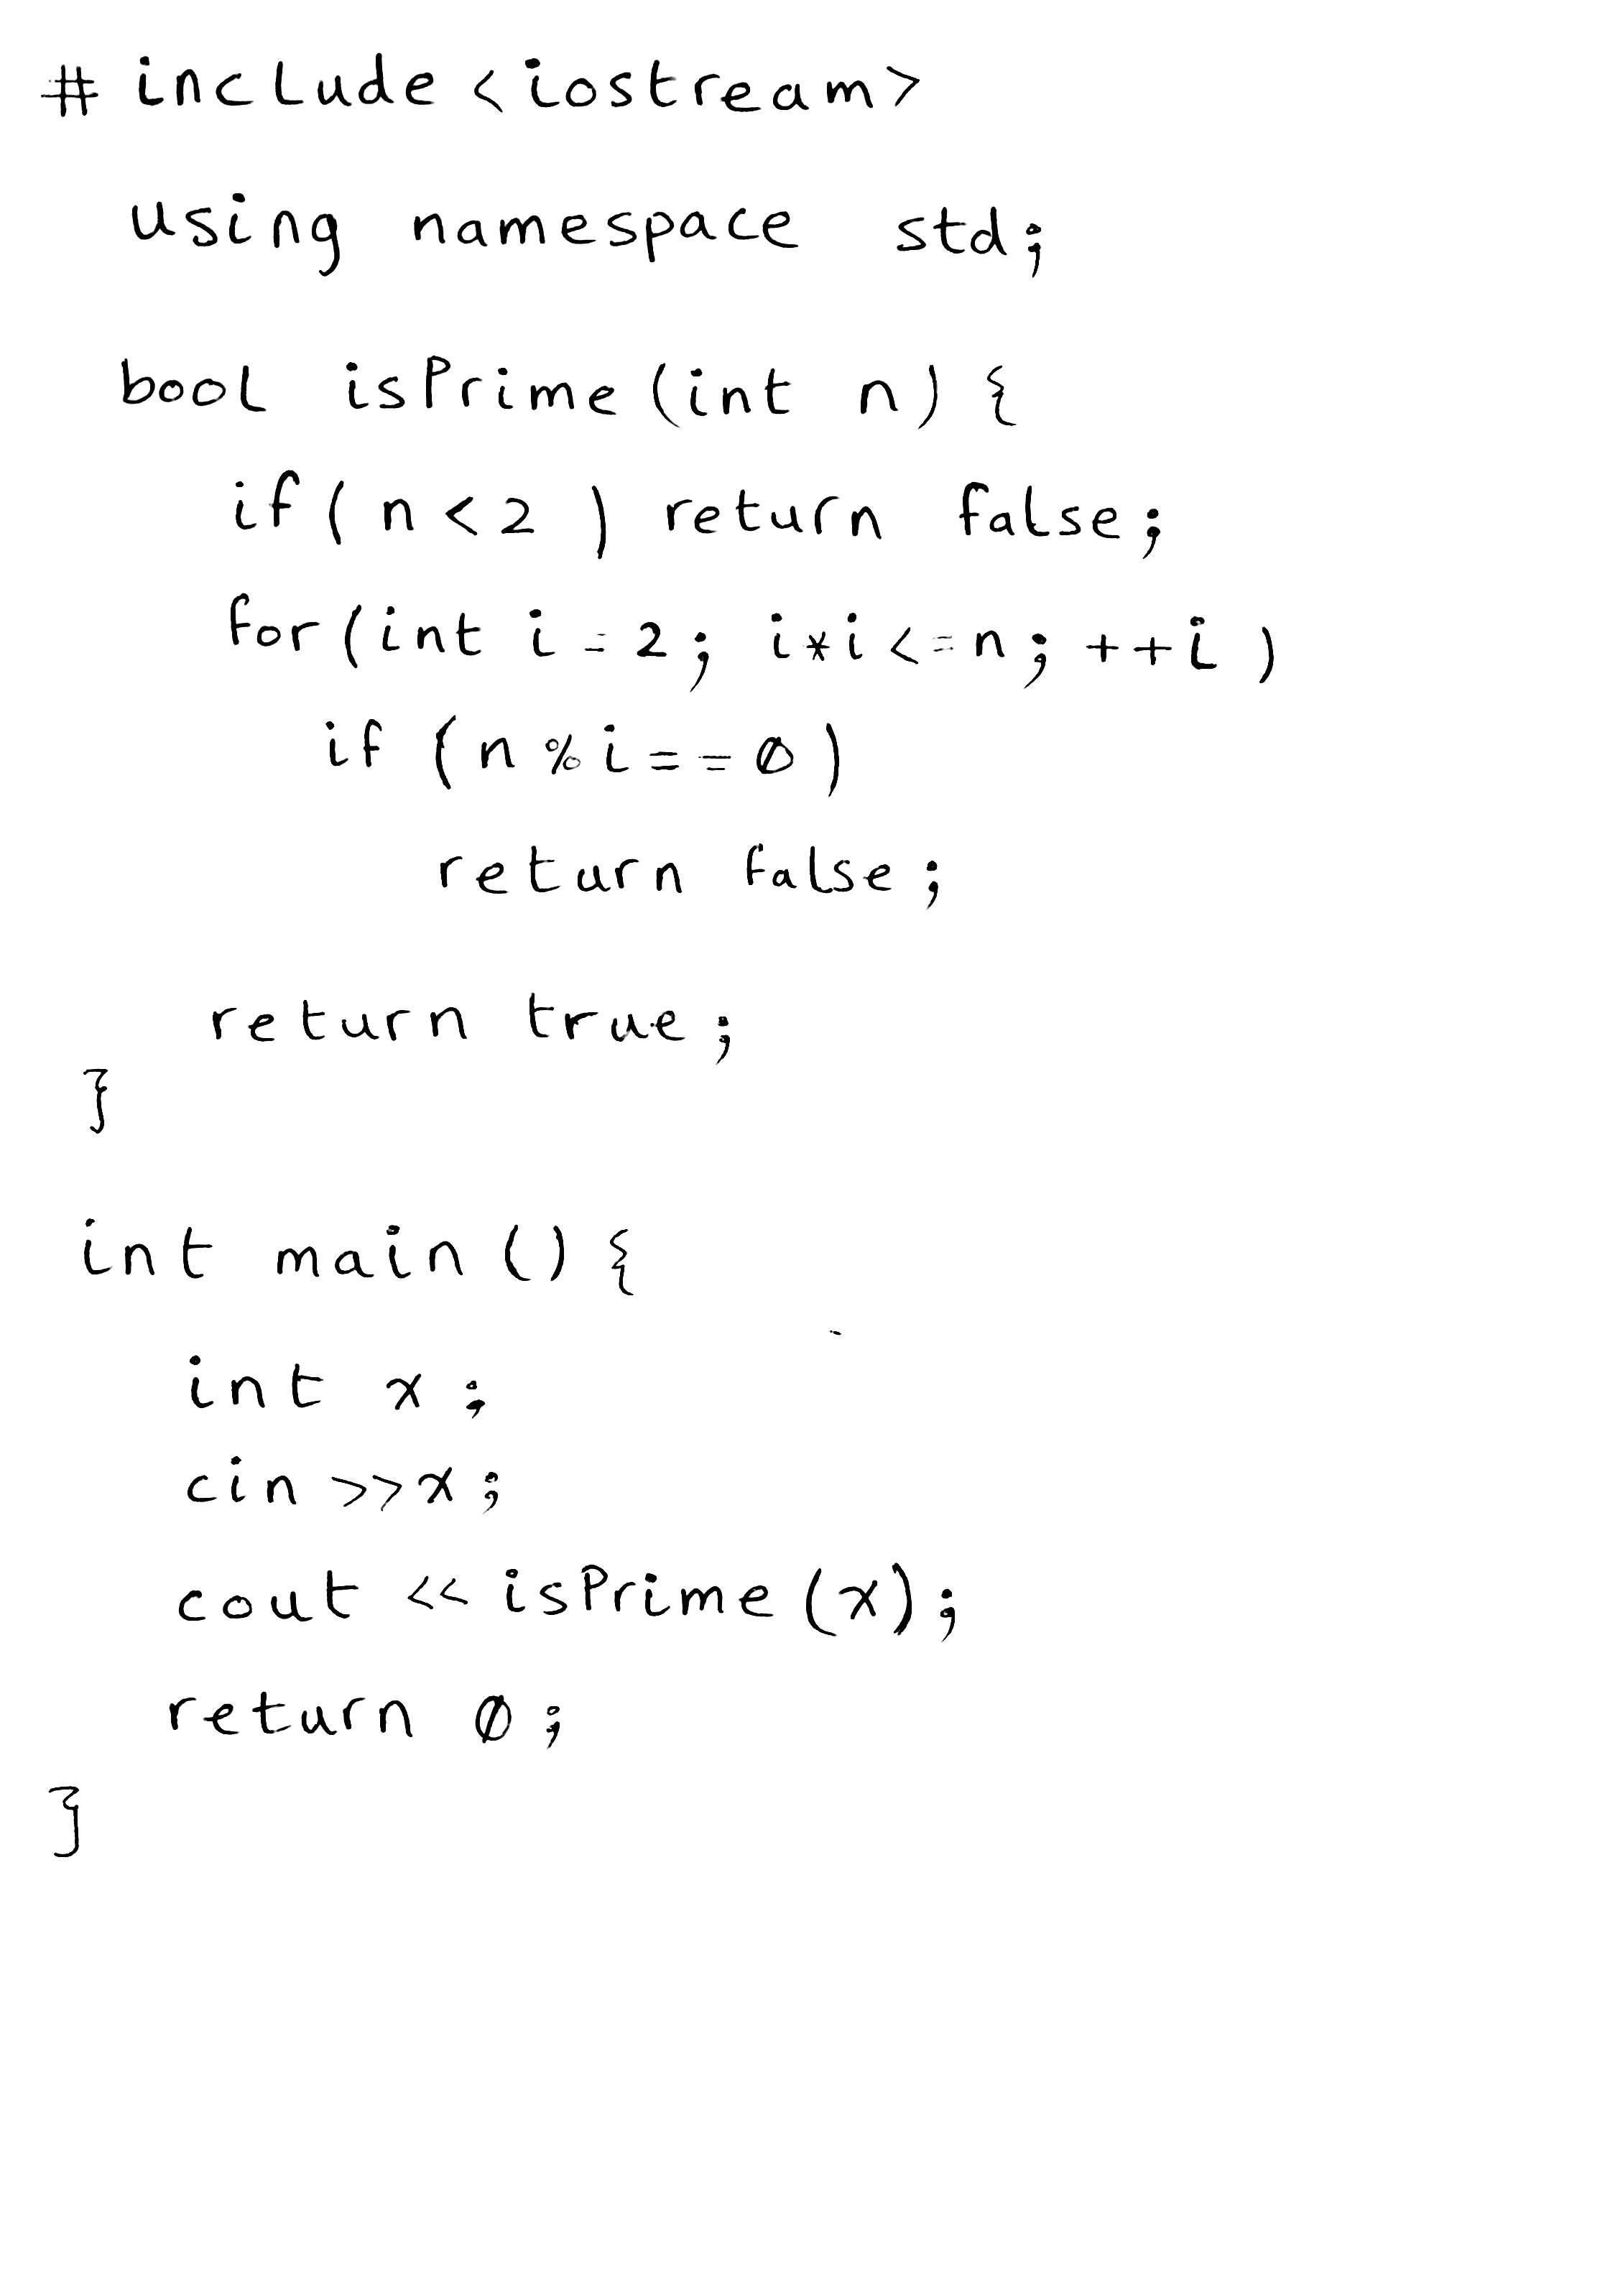 # include <iostream>
using namespace std;
bool isPrime(int n) {
if(n<2) return false;
for(int i=2; i*i<=n; ++i)
if (n%i==0)
return false;
return true;
}
int main() {
int x;
cin >>x;
cout << isPrime(x);
return 0;
}